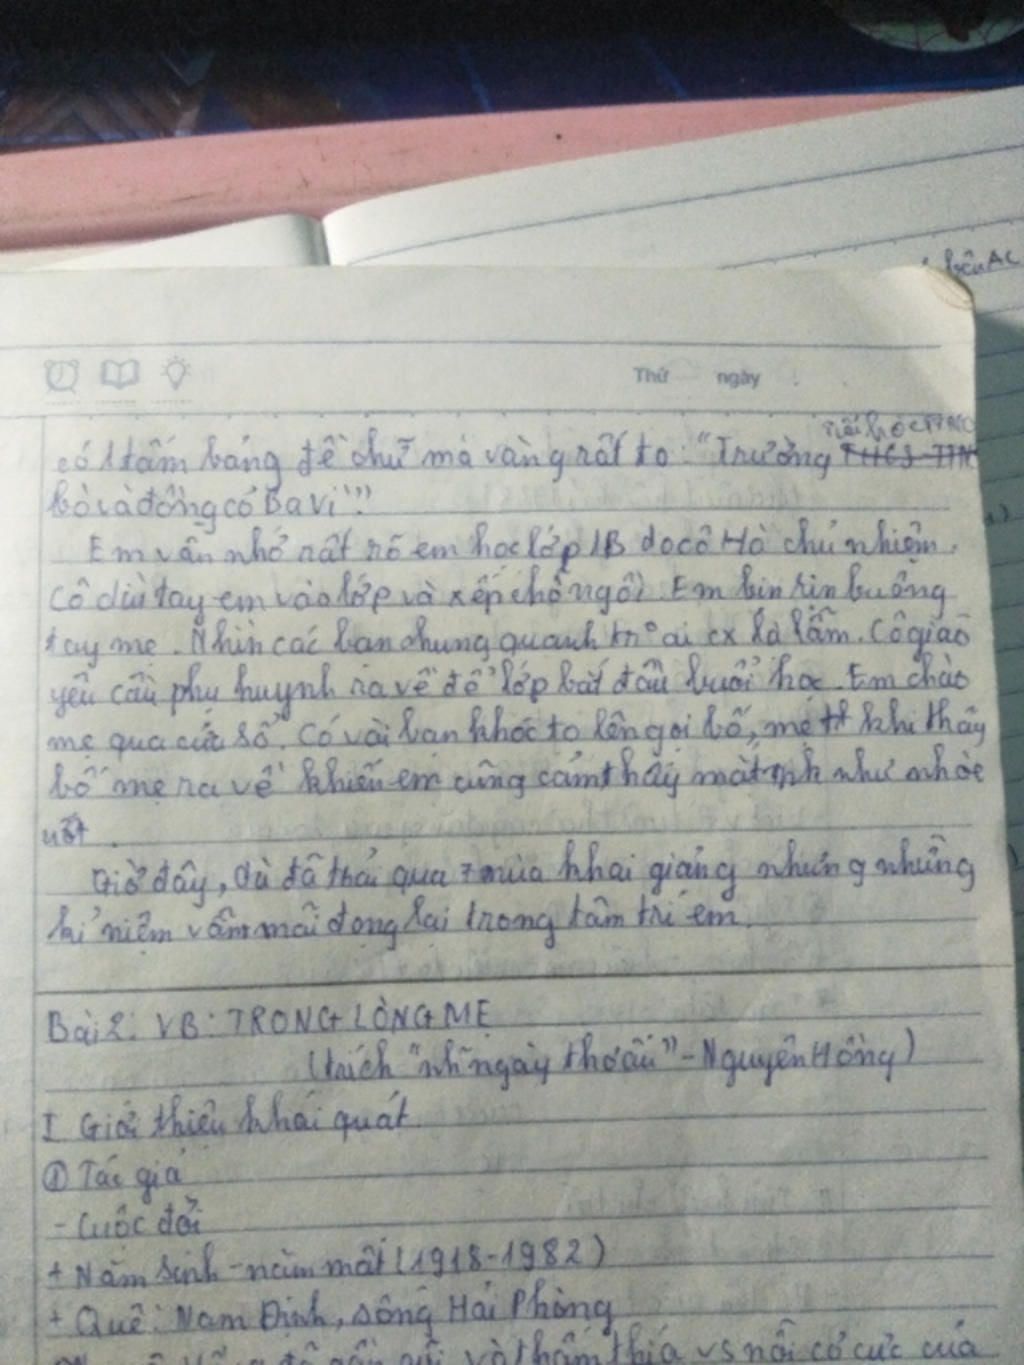 bên AC
Thứ ngày
nói học TTNC
có 1 tấm bảng đề chữ mạ vàng rất to: "Trường THCS TTN
bò và đồng cỏ Ba Vì".
Em vẫn nhớ rất rõ em học lớp 1B do cô Hà chủ nhiệm.
Cô dìu tay em vào lớp và xếp chỗ ngồi. Em bin rịn buông
tay mẹ. Nhìn các bạn chung quanh ai cx lạ lẫm. Cô giáo
yêu cầu phụ huynh ra về để lớp bắt đầu buổi học. Em chào
mẹ qua cửa sổ. Có vài bạn khóc to lên gọi bố, mẹ khi thấy
bố mẹ ra về khiến em cũng cảm thấy mắt mk như nhòe
ướt.
Giờ đây, dù đã trải qua 7 mùa khai giảng nhưng những
kỉ niệm vẫn mãi đọng lại trong tâm trí em.
Bài 2: VB: TRONG LÒNG MẸ
(trích "nh~ ngày thơ ấu" - Nguyên Hồng)
I Giới thiệu khái quát.
① Tác giả
- Cuộc đời
+ Năm sinh - năm mất (1918-1982)
+ Quê: Nam Định, sống Hải Phòng
gần gũi và thấm thía vs nỗi cơ cực của